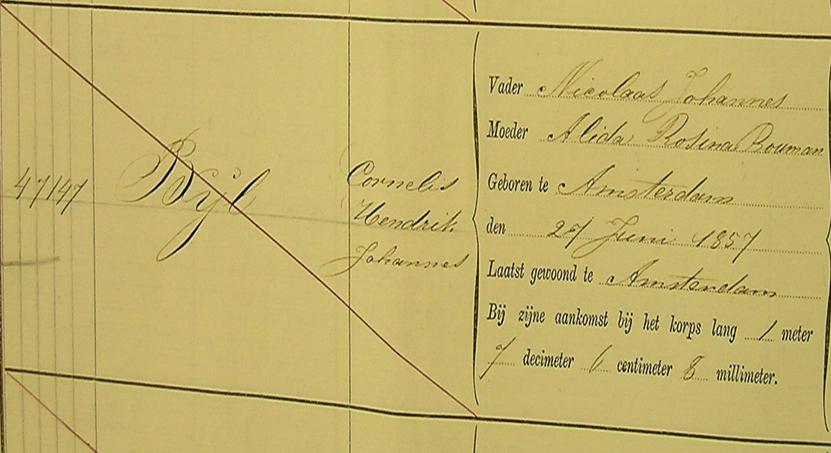 47147
Bÿl
Cornelis
Hendrik
Johannes
Vader Nicolaas Johannes
Moeder Alida Rosina Bouman
Geboren te Amsterdam
den 27 Juni 1857
Laatst gewoond te Amsterdam
Bij zijne aankomst bij het korps lang 1 meter
7 decimeter 6 centimeter 8 millimeter.